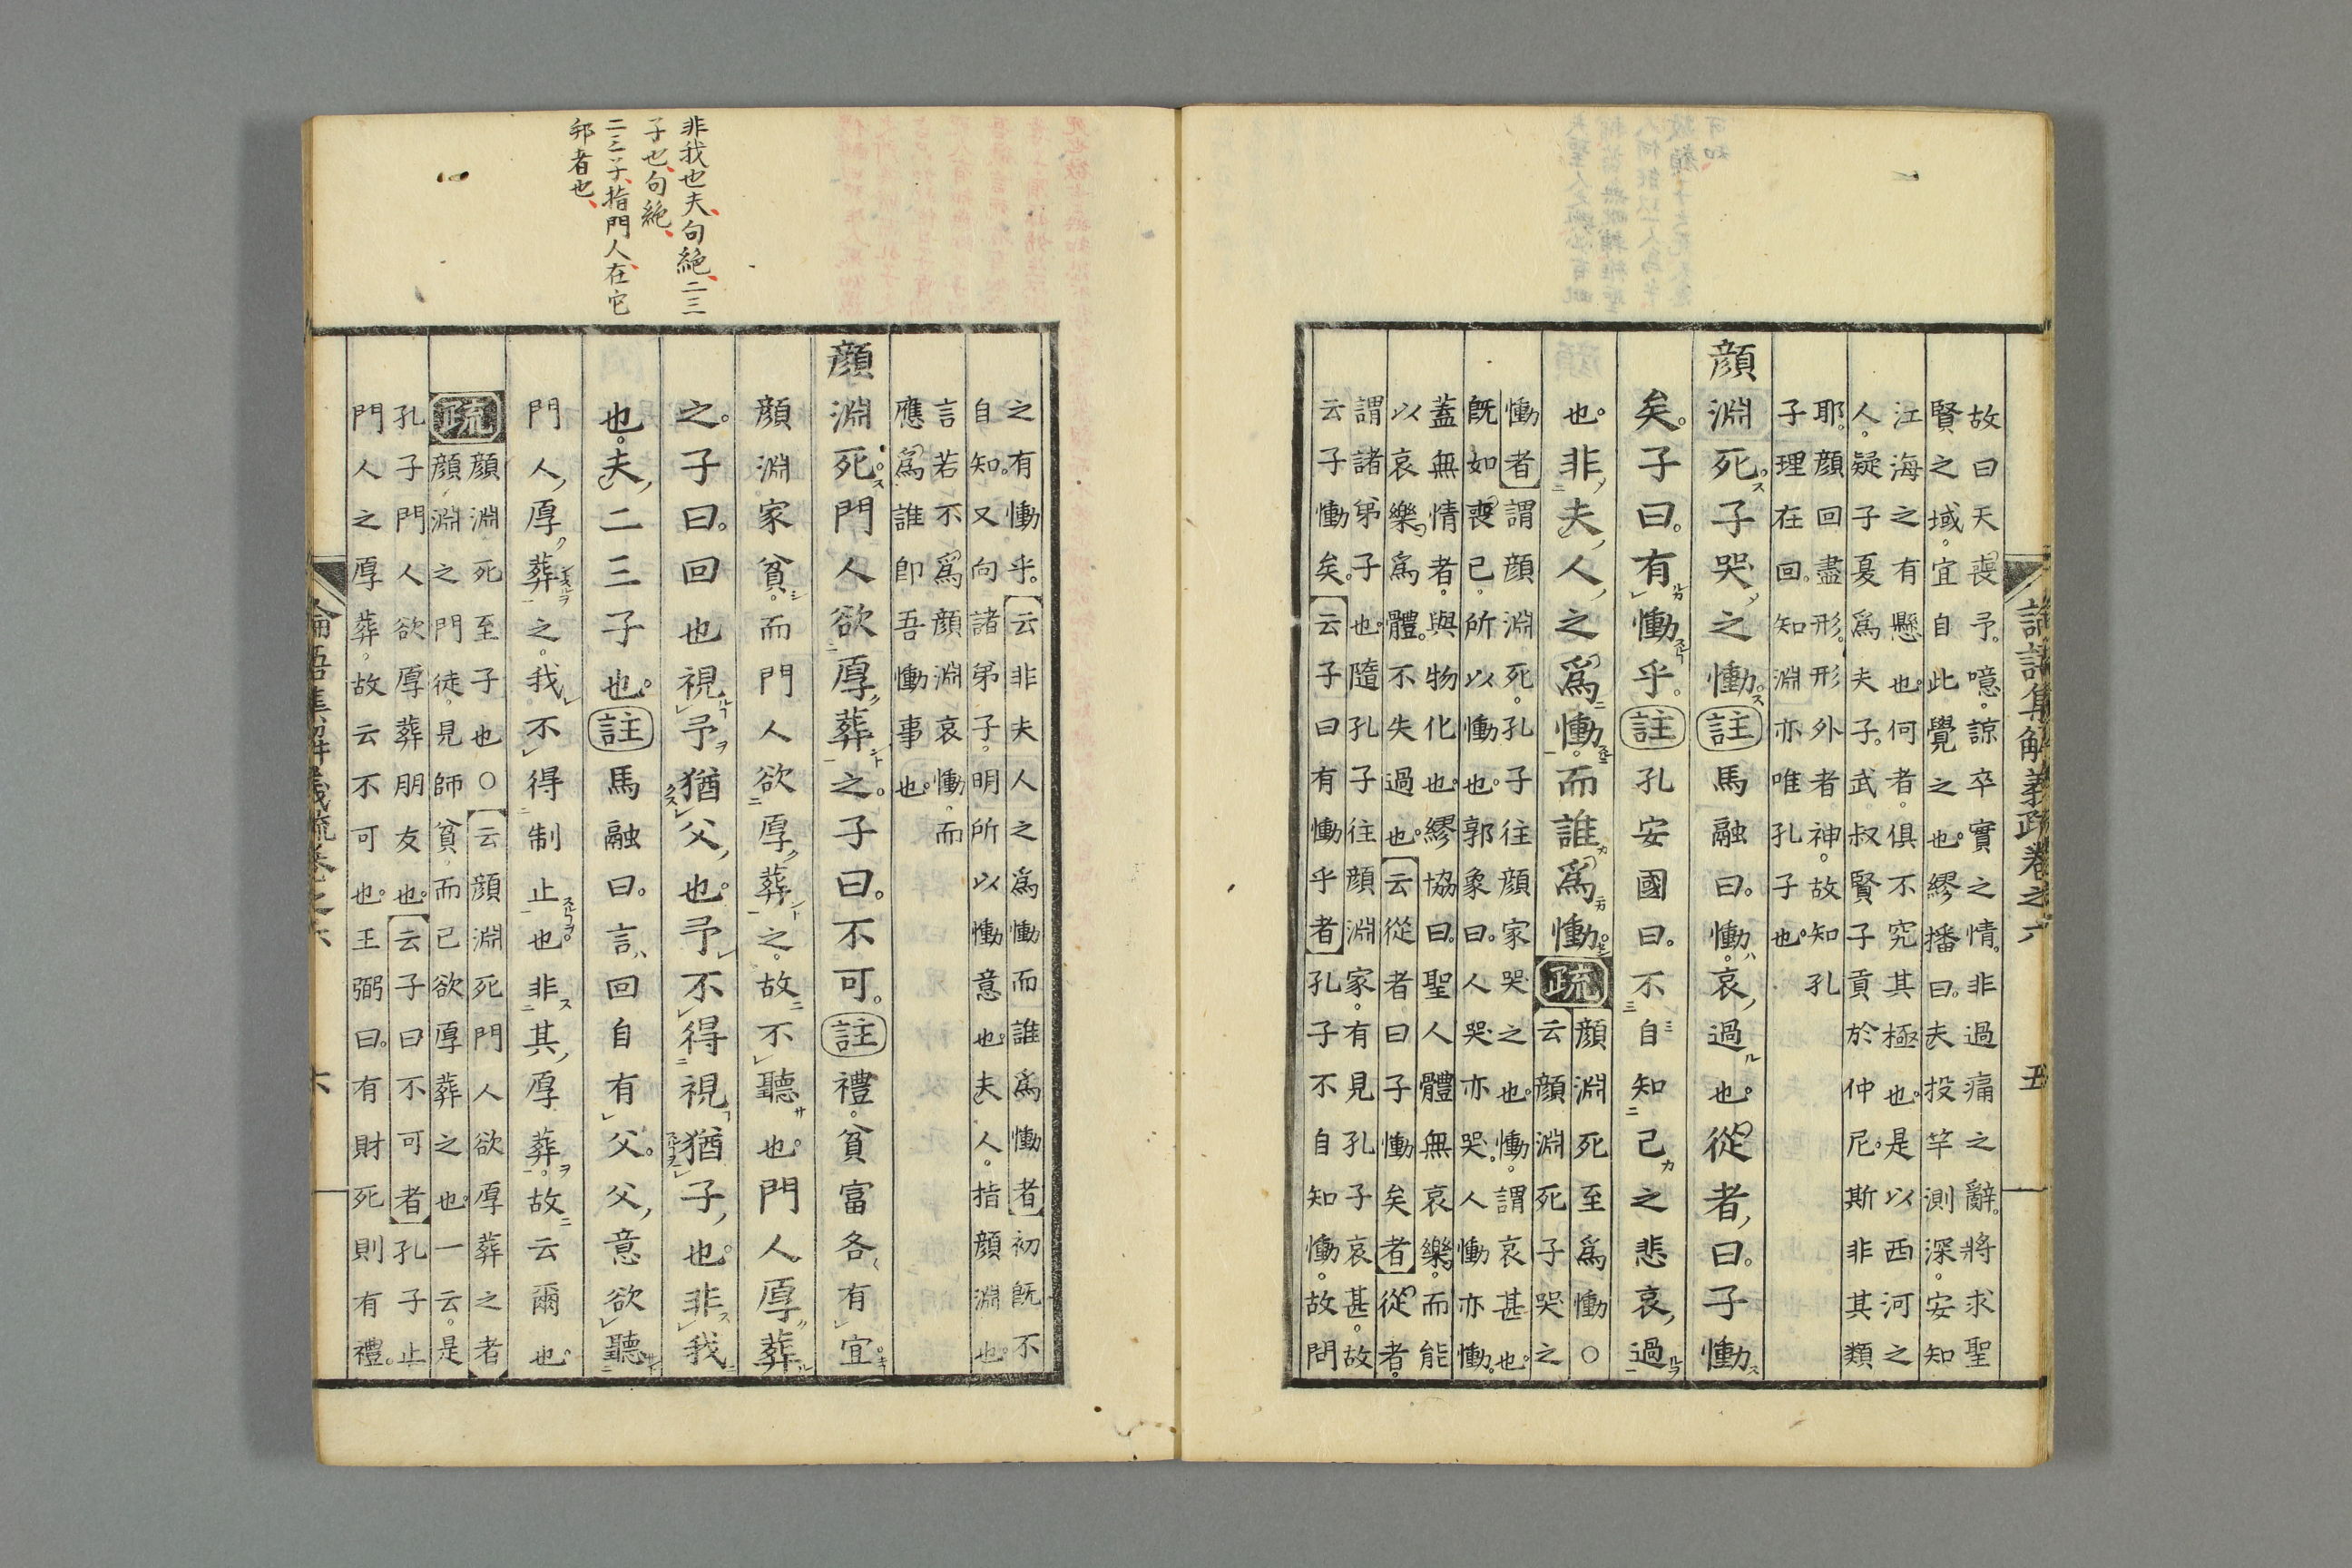 故曰天喪予。噫。諒卒實之情。非過痛之辭。將求聖
賢之域。宜自此覺之也。繆播曰。夫投竿測深。安知
江海之有懸也。何者。俱不究其極也。是以西河之
人。疑子夏爲夫子。武叔賢子貢於仲尼。斯非其類
耶。顏回盡形。形外者神。故知孔
子理在回。知淵亦唯孔子也。
顏淵死。子哭之慟。註馬融曰。慟。哀過也。從者曰。子慟
矣。子曰。有慟乎。註孔安國曰。不自知己之悲哀過
也。非夫人之爲慟。而誰爲慟。疏
顏淵死至爲慟○
云顏淵死子哭之
慟者謂顏淵死。孔子往顏家哭之也。慟。謂哀甚也。
既如喪己。所以慟也。郭象曰。人哭亦哭。人慟亦慟。
蓋無情者。與物化也。繆協曰。聖人體無哀樂。而能
以哀樂爲體。不失過也。云從者曰子慟矣者從者。
謂諸弟子也。隨孔子往顏淵家。有見孔子哀甚。故
云子慟矣。云子曰有慟乎者孔子不自知慟。故問
論語集解義疏卷之六
五
之有慟乎。云非夫人之爲慟而誰爲慟者初既不
自知。又向諸弟子。明所以慟意也。夫人。指顏淵也。
言若不爲顏淵哀慟。而
應爲誰即吾慟事也。
顏淵死。門人欲厚葬之。子曰。不可。註禮。貧富各有宜。
顏淵家貧。而門人欲厚葬之。故不聽也。門人厚葬
之。子曰。回也視予猶父也。予不得視猶子也。非我
也。夫二三子也。註馬融曰。言回自有父。父意欲聽
門人厚葬之。我不得制止也。非其厚葬。故云爾也。
疏
顏淵死至子也○云顏淵死門人欲厚葬之者
顏淵之門徒。見師貧而己欲厚葬之也。一云。是
孔子門人欲厚葬朋友也。云子曰不可者孔子止
門人之厚葬。故云不可也。王弼曰。有財死則有禮。
論語集解義疏卷之六
六
非我也夫、句絶、二三
子也、句絶、
二三子、指門人、在它
邦者也、